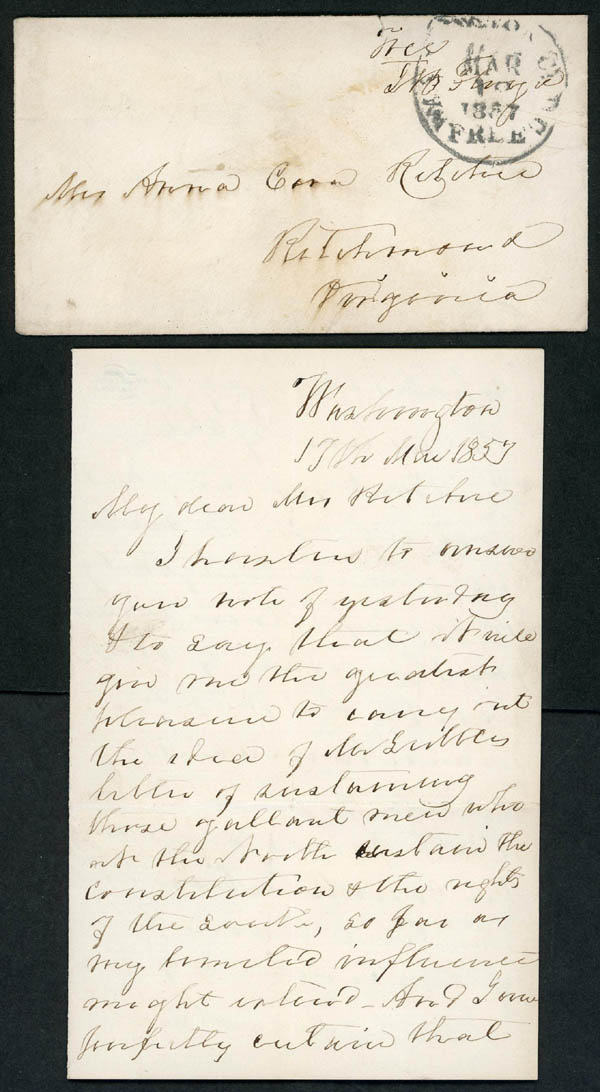 Free
WASHINGTON CITY D.C.
MAR
1857
FREE
Mrs Anna Cora Ritchie
Richmond
Virginia
Washington
17th Mar 1857
My dear Mrs Ritchie
I hasten to answer
your note of yesterday
& to say that it will
give me the greatest
pleasure to carry out
the idea of Mr
letter of sustaining
those gallant men who
at the North sustain the
constitution & the rights
of the South, so far as
my limited influence
might extend - And I am
perfectly certain that